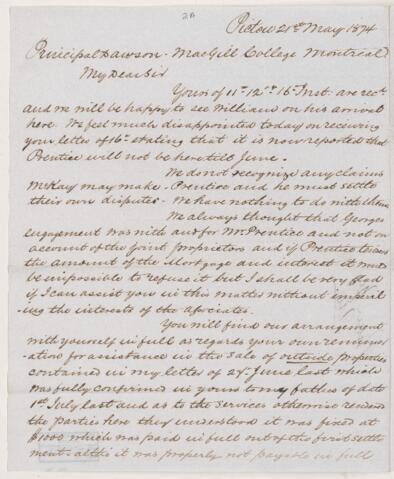 2B
Pictou 21st May 1874
Principal Dawson - MacGill College Montreal
My Dear Sir
Yours of 11th 12th 16th Inst. are recd
and we will be happy to see William on his arrival
here. We feel much disappointed today on receiving
your letter of 16th stating that it is now reported that
Prentice will not be here till June.
We do not recognize any claims
McKay may make - Prentice and he must settle
their own disputes - We have nothing to do with them
We always thought that Georges
engagement was with and for Mr Prentice and not on
account of the Joint proprietors and if Prentice
the amount of the Mortgage and interest it must
be impossible to refuse it but I shall be very glad
if I can assist you in this matter without
ing the interests of the Associates.
You will find our arrangement
with yourself in full as regards your own remuner
-ation for assistance in the sale of outside properties
contained in my letter of 27th June last which
was fully confirmed in yours to my father of date
1st July last and as to the services otherwise rendered
the parties here they understood it was fixed at
$1000 which was paid in full out of the first settle
ment - altho it was properly not payable in full